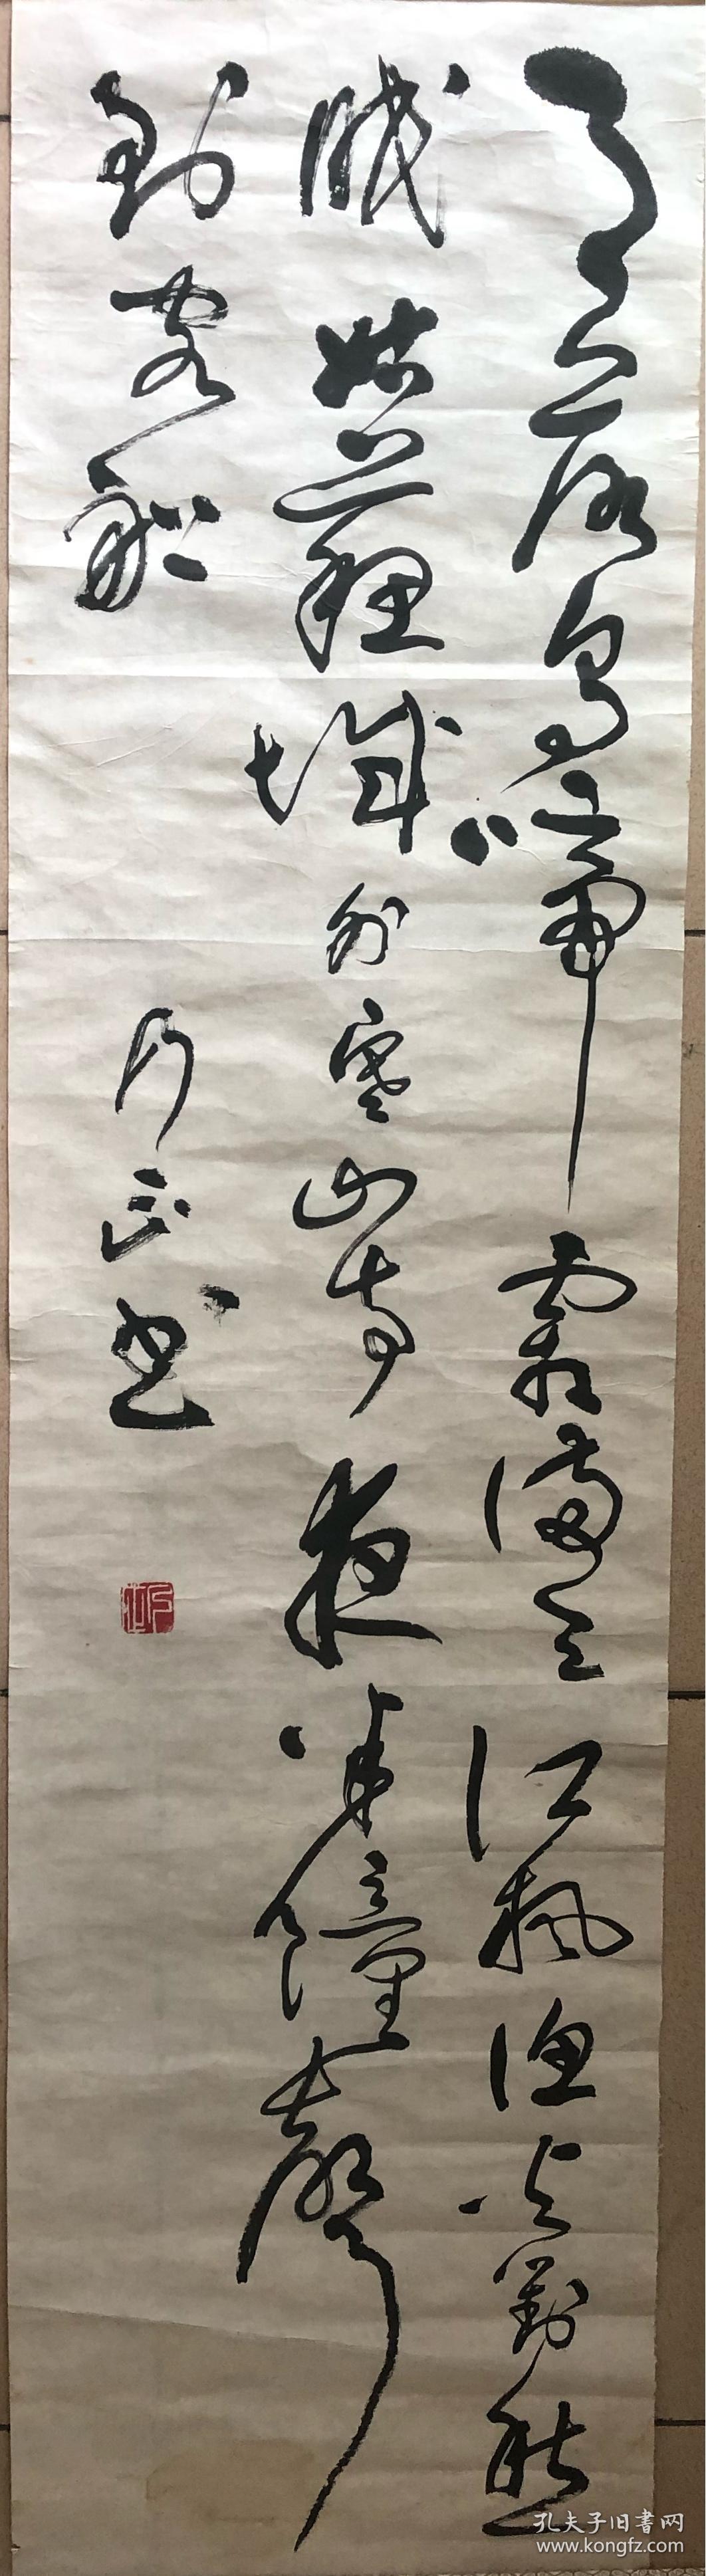 月落烏啼霜滿天江枫渔火對愁
眠姑蘇城外寒山寺夜半鐘聲
到客船
乃正书
孔夫子旧書网
www.kongfz.com